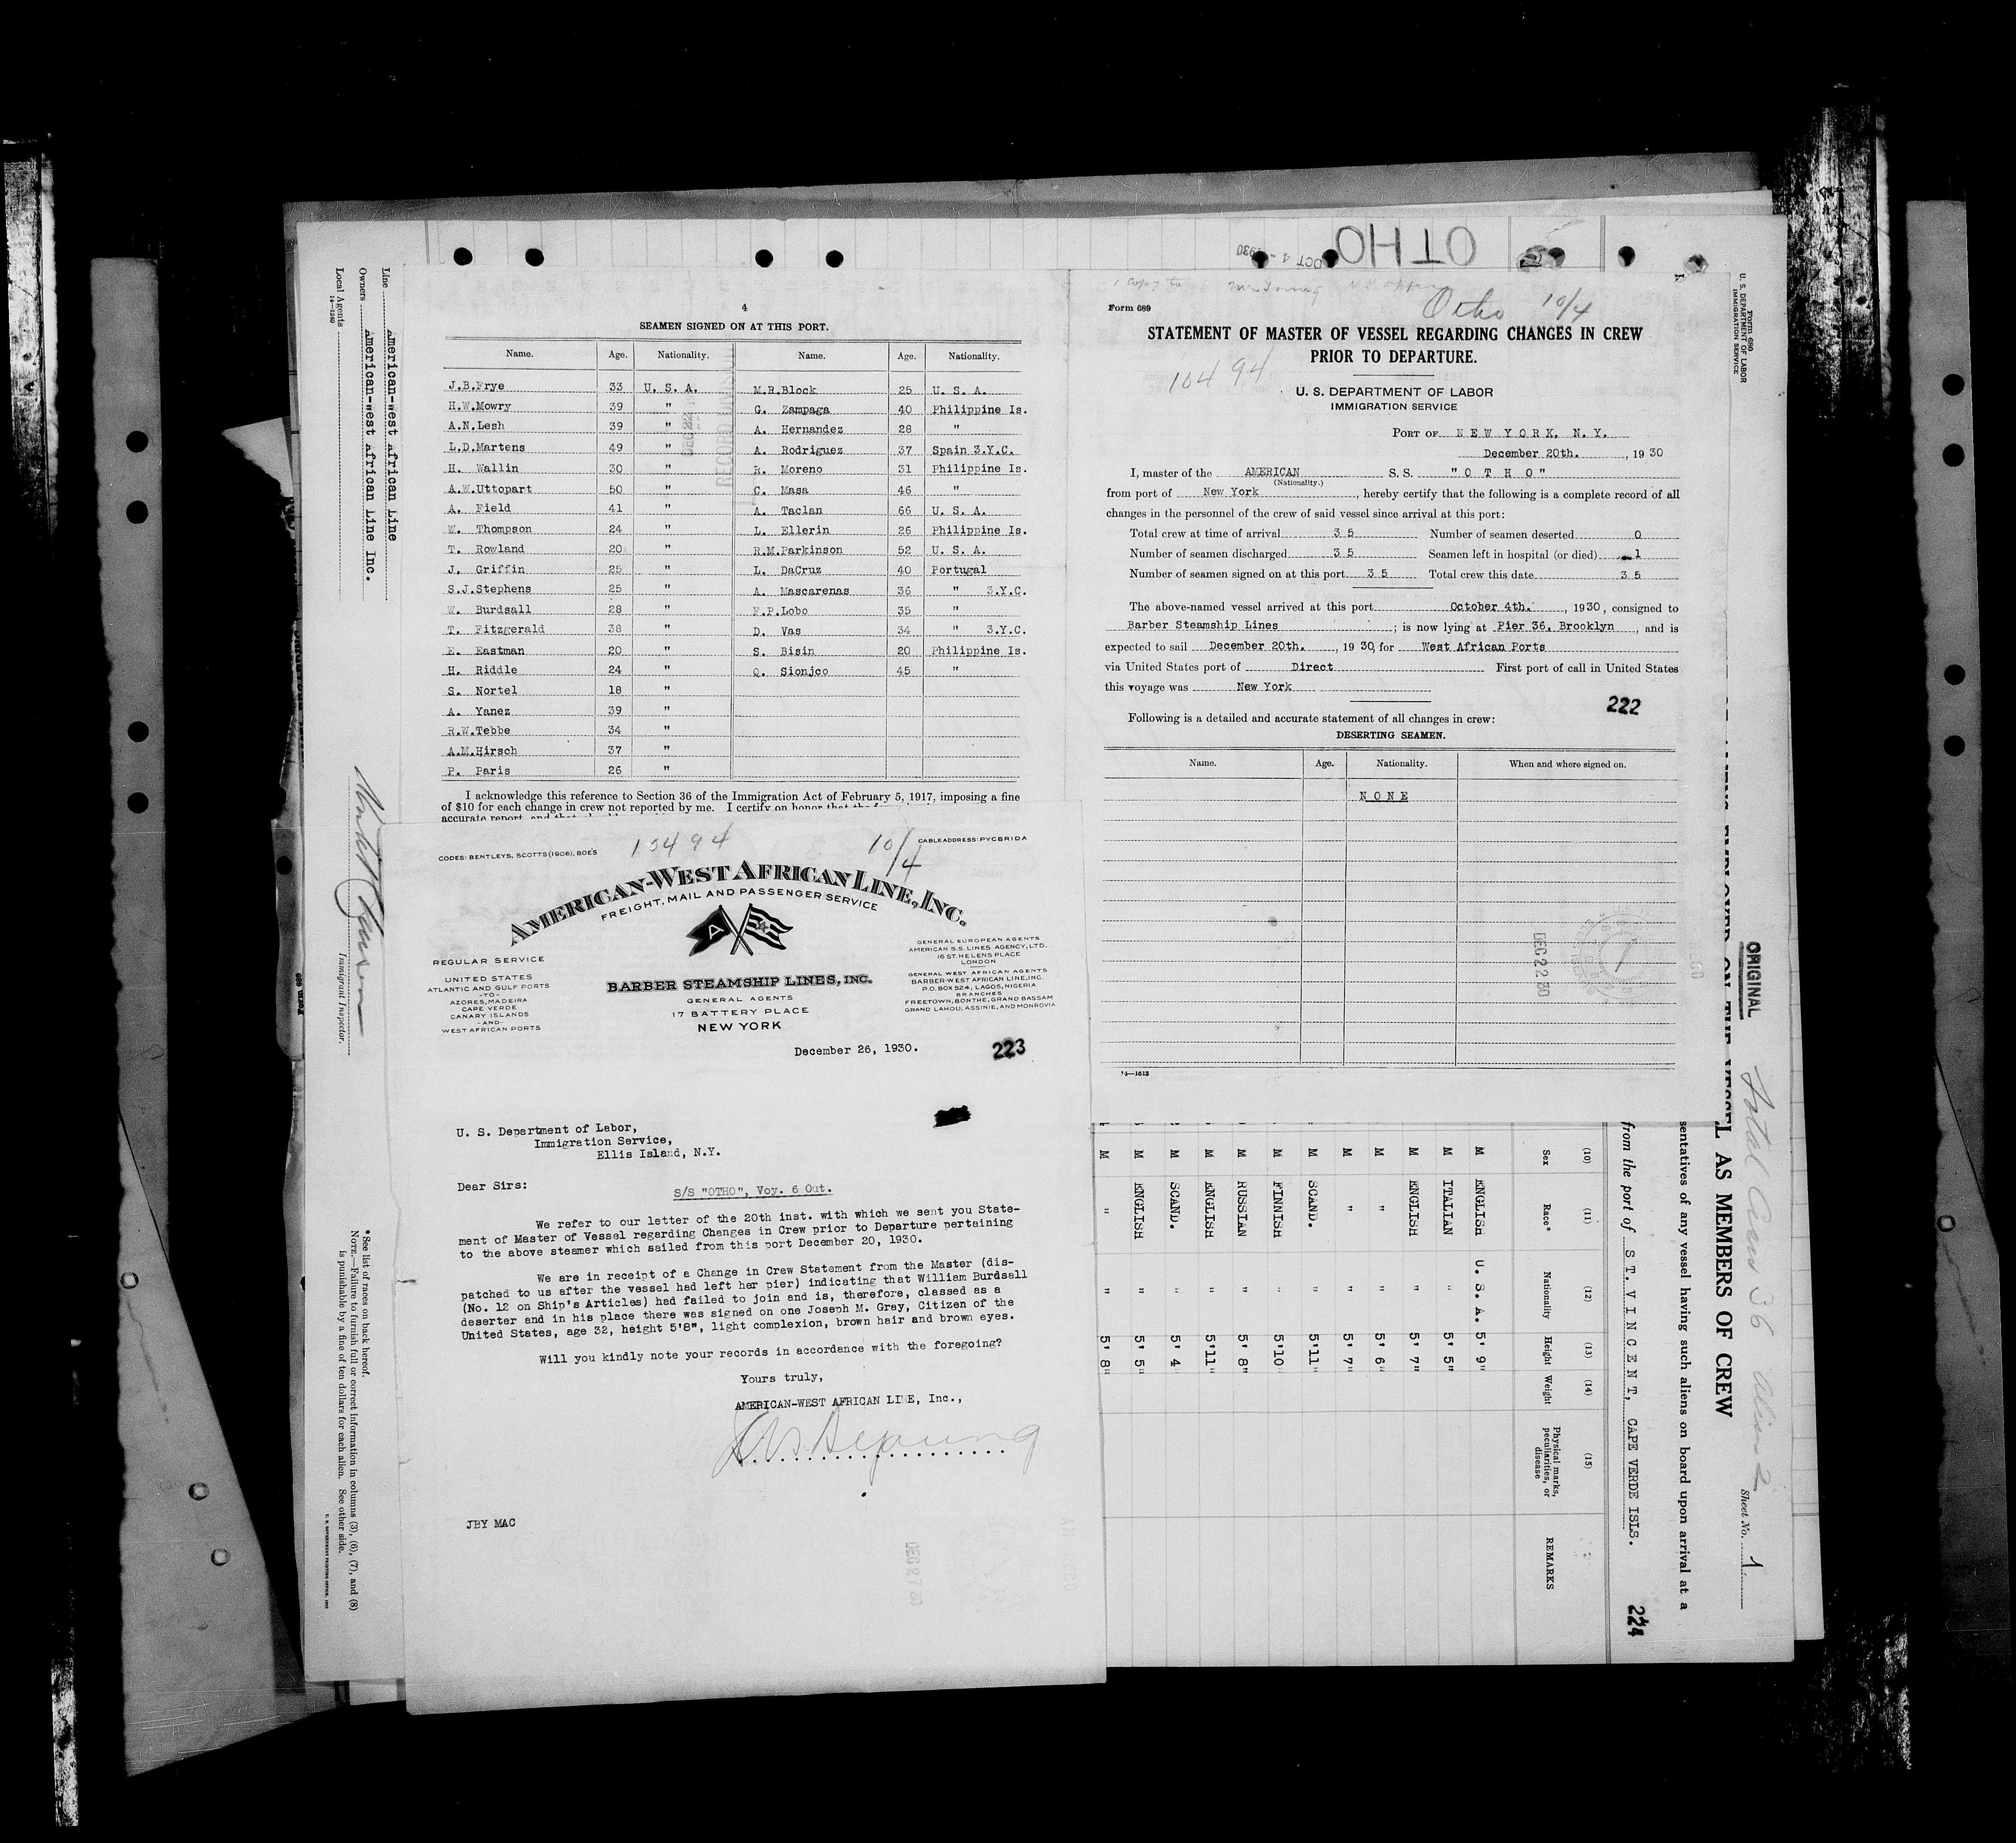 OTHO
OCT - 4 1930
4
SEAMEN SIGNED ON AT THIS PORT.
Name. Age. Nationality. Name. Age. Nationality.
J.B.Frye 33 U. S. A. M.R.Block 25 U. S. A.
H.W.Mowry 39 " G. Zampaga 40 Philippine Is.
A.N.Lesh 39 " A. Hernandez 28 "
L.D.Martens 49 " A. Rodriguez 37 Spain 3.Y.C.
H. Wallin 30 " R. Moreno 31 Philippine Is.
A.W.Uttopart 50 " C. Masa 46 "
A. Field 41 " A. Taclan 66 U. S. A.
W. Thompson 24 " L. Ellerin 26 Philippine Is.
T. Rowland 20 " R.M.Parkinson 52 U. S. A.
J. Griffin 25 " L. DaCruz 40 Portugal
S.J.Stephens 25 " A. Mascarenas 36 " 3.Y.C.
W. Burdsall 28 " F.P.Lobo 35 "
T. Fitzgerald 38 " D. Vas 34 " 3.Y.C.
E. Eastman 20 " S. Bisin 20 Philippine Is.
H. Riddle 24 " Q. Sionjco 45 "
S. Nortel 18 "
A. Yanez 39 "
R.W.Tebbe 34 "
A.M.Hirsch 37 "
P. Paris 26 "
DEC 22
RECORD DIVISION
I acknowledge this reference to Section 36 of the Immigration Act of February 5, 1917, imposing a fine
of $10 for each change in crew not reported by me. I certify on honor that the
accurate report, and that
1 copy to
Otho 10/4
Form 689
STATEMENT OF MASTER OF VESSEL REGARDING CHANGES IN CREW
PRIOR TO DEPARTURE.
10494
U. S. DEPARTMENT OF LABOR
IMMIGRATION SERVICE
PORT OF NEW YORK, N.Y.
December 20th. , 1930
I, master of the AMERICAN S. S. "O T H O"
(Nationality.)
from port of New York , hereby certify that the following is a complete record of all
changes in the personnel of the crew of said vessel since arrival at this port:
Total crew at time of arrival 3 5 Number of seamen deserted 0
Number of seamen discharged 3 5 Seamen left in hospital (or died) 1
Number of seamen signed on at this port 3 5 Total crew this date 3 5
The above-named vessel arrived at this port October 4th. , 1930, consigned to
Barber Steamship Lines ; is now lying at Pier 36, Brooklyn , and is
expected to sail December 20th. , 1930, for West African Ports
via United States port of Direct First port of call in United States
this voyage was New York
222
Following is a detailed and accurate statement of all changes in crew:
DESERTING SEAMEN.
Name. Age. Nationality. When and where signed on.
N O N E
DEC 22 30
14—1613
CODES: BENTLEYS, SCOTTS (1906), BOE'S
10494
10/4
CABLE ADDRESS: PYCBRIDA
AMERICAN-WEST AFRICAN LINE, INC.
FREIGHT, MAIL AND PASSENGER SERVICE
A
REGULAR SERVICE
UNITED STATES
ATLANTIC AND GULF PORTS
-TO-
AZORES, MADEIRA
CAPE VERDE
CANARY ISLANDS
-AND-
WEST AFRICAN PORTS
BARBER STEAMSHIP LINES, INC.
GENERAL AGENTS
17 BATTERY PLACE
NEW YORK
GENERAL EUROPEAN AGENTS
AMERICAN S.S. LINES AGENCY, LTD.
16 ST. HELENS PLACE
LONDON
GENERAL WEST AFRICAN AGENTS
BARBER-WEST AFRICAN LINE, INC.
P.O. BOX 524, LAGOS, NIGERIA
BRANCHES
FREETOWN, BONTHE, GRAND BASSAM
GRAND LAHOU, ASSINIE, AND MONROVIA
December 26, 1930.
223
U. S. Department of Labor,
Immigration Service,
Ellis Island, N.Y.
Dear Sirs:
S/S "OTHO", Voy. 6 Out.
We refer to our letter of the 20th inst. with which we sent you State-
ment of Master of Vessel regarding Changes in Crew prior to Departure pertaining
to the above steamer which sailed from this port December 20, 1930.
We are in receipt of a Change in Crew Statement from the Master (dis-
patched to us after the vessel had left her pier) indicating that William Burdsall
(No. 12 on Ship's Articles) had failed to join and is, therefore, classed as a
deserter and in his place there was signed on one Joseph M. Gray, Citizen of the
United States, age 32, height 5'8", light complexion, brown hair and brown eyes.
Will you kindly note your records in accordance with the foregoing?
Yours truly,
AMERICAN-WEST AFRICAN LINE, Inc.,
JBY MAC
DEC 27 30
Line American-West African Line
Owners American-West African Line Inc.
Local Agents
14—1240
Immigrant Inspector.
Form 689
*See list of races on back hereof.
NOTE.—Failure to furnish full or correct information in columns (3), (6), (7), and (8)
is punishable by a fine of ten dollars for each alien. See other side.
U. S. GOVERNMENT PRINTING OFFICE
Form 680
U. S. DEPARTMENT OF LABOR
IMMIGRATION SERVICE
ORIGINAL
Total Crew 36 Alien 2
Sheet No. 1
L AS MEMBERS OF CREW
sentatives of any vessel having such aliens on board upon arrival at a
from the port of ST. VINCENT, CAPE VERDE ISLS.
224
(10) (11) (12) (13) (14) (15)
Sex Race* Nationality Height Weight Physical marks, peculiarities, or disease REMARKS
M ENGLISH U. S. A. 5' 9"
M ITALIAN " 5' 5"
M ENGLISH " 5' 7"
M " " 5' 6"
M " " 5' 7"
M SCAND. " 5'11"
M FINNISH " 5'10
M RUSSIAN " 5' 8"
M ENGLISH " 5'11"
M SCAND. " 5' 4
M ENGLISH " 5' 5"
M " " 5' 8"